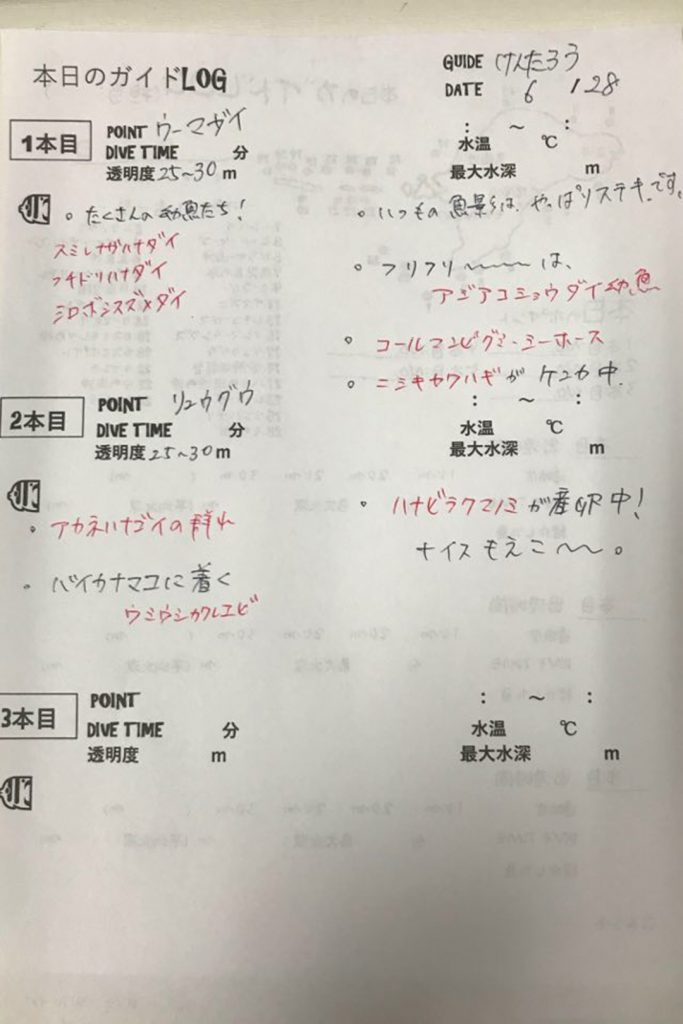 本日のガイドLOG
GUIDE けんたろう
DATE 6 / 28
1本目
POINT ウーマガイ
DIVE TIME 分
透明度 25~30 m
: ~ :
水温 ℃
最大水深 m
。たくさんの幼魚たち!
スミレナガハナダイ
フチドリハナダイ
シロボシスズメダイ
。いつもの魚影は、やっぱりステキです。
。フリフリ~~~は、
アジアコショウダイ幼魚
。コールマンピグミーシーホース
。ニシキカワハギがケンカ中.
2本目
POINT リュウグウ
DIVE TIME 分
透明度 25~30 m
: ~ :
水温 ℃
最大水深 m
。アカネハナゴイの群れ
。バイカナマコに着く
ウミウシカクレエビ
。ハナビラクマノミが産卵中!
ナイスもえこ~~。
3本目
POINT
DIVE TIME 分
透明度 m
: ~ :
水温 ℃
最大水深 m